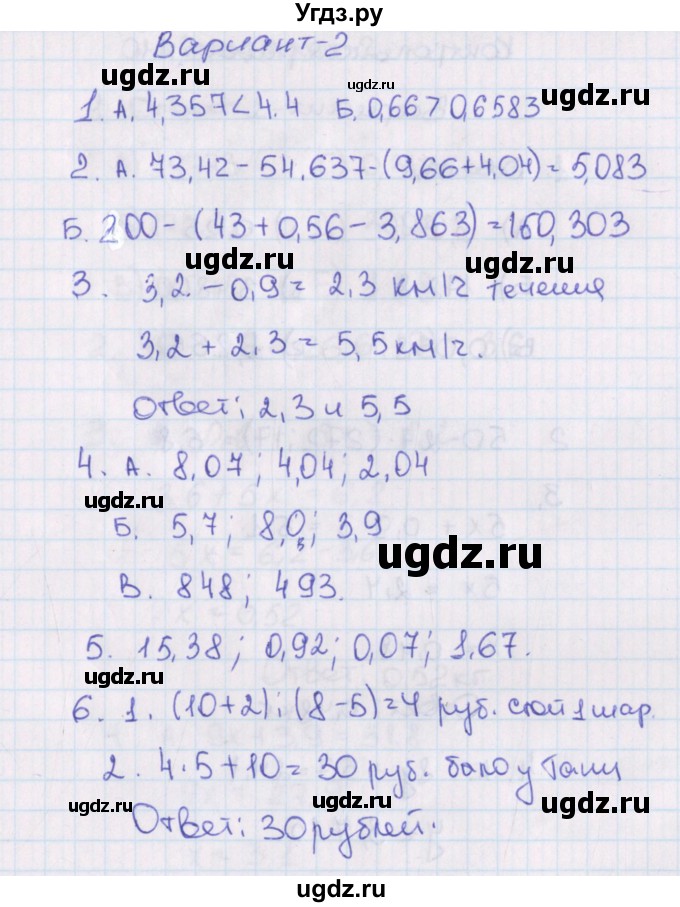 Угдз.ру
Вариант-2
1. А. 4,357 < 4.4 Б. 0,66 > 0,6583
2. А. 73,42 - 54.637 - (9,66 + 4,04) = 5,083
Б. 200 - (43 + 0,56 - 3,863) = 160,303
3. 3,2 - 0,9 = 2.3 км/ч течения
3,2 + 2.3 = 5,5 км/ч.
Ответ: 2,3 и 5,5
4. А. 8,07; 4,04; 2,04
Б. 5,7; 8,0; 3,9
В. 848; 493.
5. 15,38; 0,92; 0,07; 1,67.
6. 1. (10+2):(8-5)=4 руб. стоит 1 шар.
2. 4·5+10=30 руб. было у Тани
Ответ: 30 рублей.
ugdz.ru
ugdz.ru
ugdz.ru
ugdz.ru
ugdz.ru
ugdz.ru
ugdz.ru
ugdz.ru
ugdz.ru
ugdz.ru
ugdz.ru
ugdz.ru